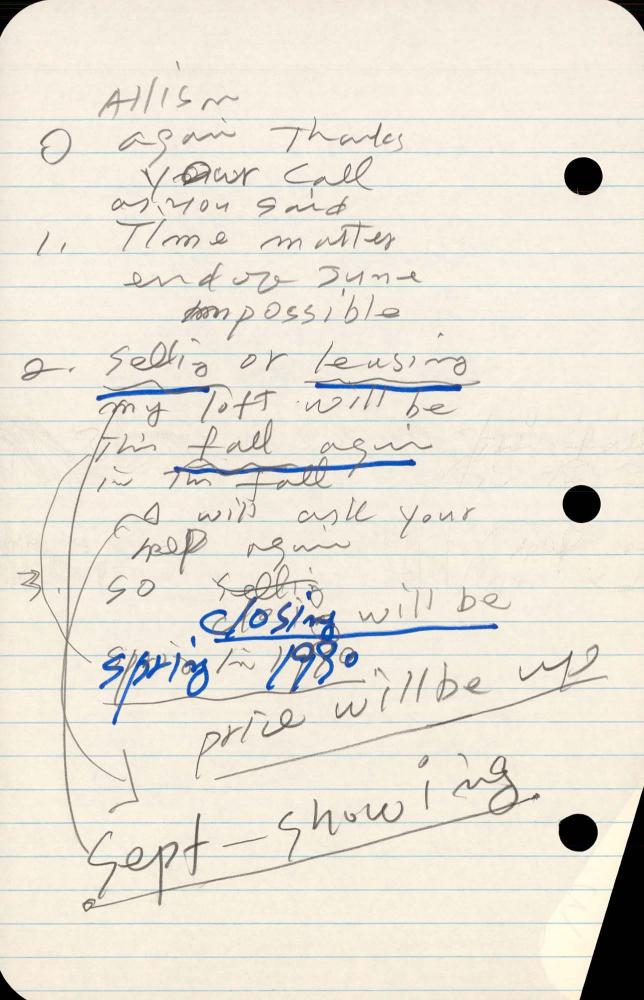 Allison
0 again Thanks
your call
as you said
1. Time matter
end of June
impossible
2. Selling or leasing
my loft will be
This fall again
in This fall
I will ask your
help again
3. so selling
closing will be
spring in 1980
price will be up
Sept - showing